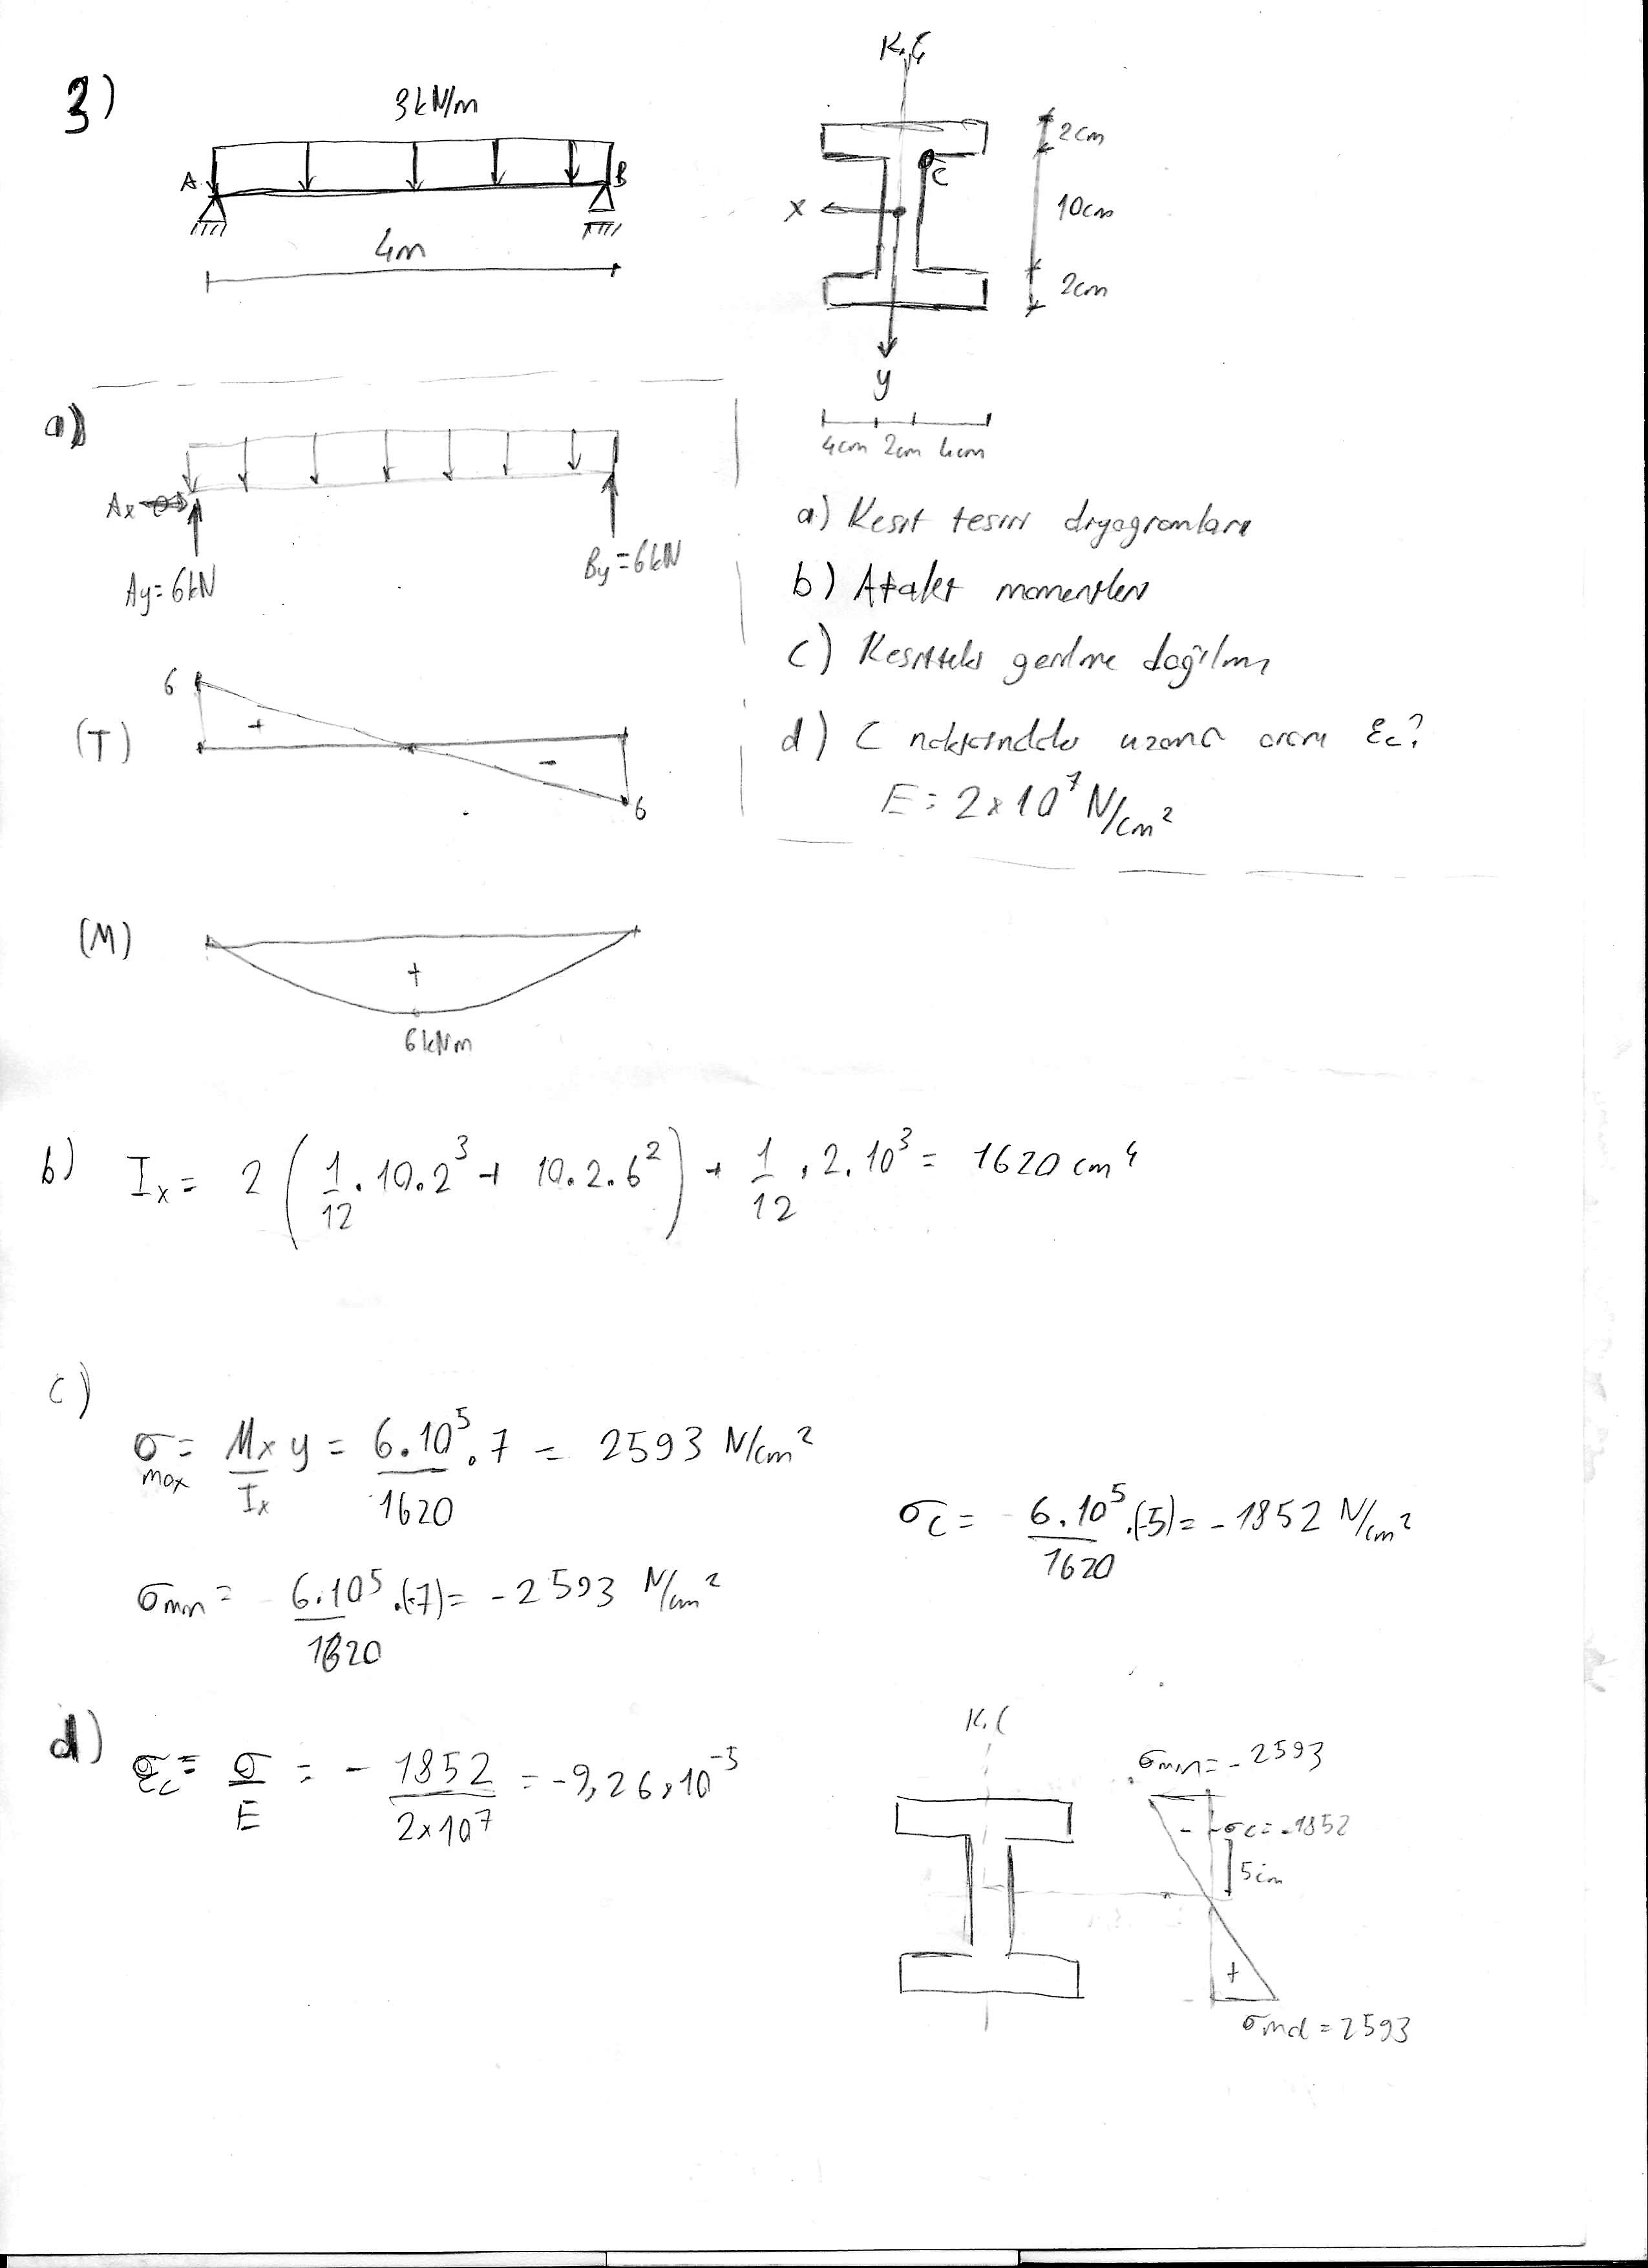 3)
3kN/m
A
B
4m
K.Ç
C
x
y
2cm
10cm
2cm
4cm 2cm 4cm
a)
Ax
Ay=6kN
By=6kN
(T)
6
+
-
6
(M)
+
6kNm
a) Kesit tesiri diyagramları
b) Atalet momentleri
c) Kesitteki gerilme dağılımı
d) C noktasındaki uzama oranı εc?
E = 2x10⁷ N/cm²
b) Ix = 2 (1/12 . 10.2³ + 10.2.6²) + 1/12 . 2.10³ = 1620 cm⁴
c)
σmax = Mx/Ix y = 6.10⁵/1620 . 7 = 2593 N/cm²
σmin = 6.10⁵/1620 .(-7) = -2593 N/cm²
σc = 6.10⁵/1620 .(-5) = -1852 N/cm²
d) εc = σ/E = - 1852/2x10⁷ = -9,26x10⁻⁵
σmin = -2593
-
σc = -1852
5cm
+
= 2593